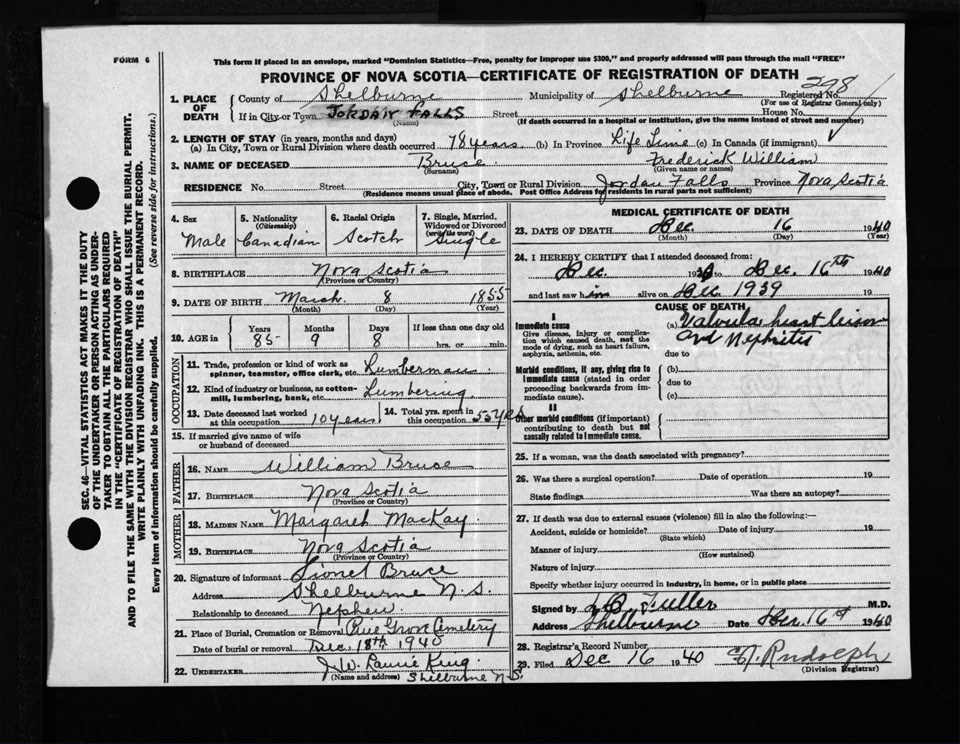 FORM 6
This form if placed in an envelope, marked "Dominion Statistics—Free, penalty for Improper use $300," and properly addressed will pass through the mail "FREE"
PROVINCE OF NOVA SCOTIA—CERTIFICATE OF REGISTRATION OF DEATH
298
Registered No.
(For use of Registrar General only)
1. PLACE OF DEATH
County of Shelburne Municipality of Shelburne
If in City or Town JORDAN FALLS Street House No.
(Name) (If death occurred in a hospital or institution, give the name instead of street and number)
2. LENGTH OF STAY (in years, months and days)
(a) In City, Town or Rural Division where death occurred 78 years. (b) In Province Life Time (c) In Canada (if immigrant)
3. NAME OF DECEASED Bruce Frederick William
(Surname) (Given name or names)
RESIDENCE No. Street City, Town or Rural Division Jordan Falls Province Nova Scotia
(Residence means usual place of abode. Post Office Address for residents in rural parts not sufficient)
4. Sex
Male
5. Nationality
(Citizenship)
Canadian
6. Racial Origin
Scotch
7. Single, Married,
Widowed or Divorced
(write the word)
Single
8. BIRTHPLACE Nova Scotia
(Province or Country)
9. DATE OF BIRTH March 8 1855
(Month) (Day) (Year)
10. AGE in
Years Months Days If less than one day old
85 9 8 hrs. or min.
OCCUPATION
11. Trade, profession or kind of work as
spinner, teamster, office clerk, etc. Lumberman
12. Kind of industry or business, as cotton-
mill, lumbering, bank, etc. Lumbering.
13. Date deceased last worked
at this occupation 10 years.
14. Total yrs. spent in
this occupation 55 yrs
15. If married give name of wife
or husband of deceased
FATHER
16. NAME William Bruce
17. BIRTHPLACE Nova Scotia
(Province or Country)
MOTHER
18. MAIDEN NAME Margaret MacKay.
19. BIRTHPLACE Nova Scotia
(Province or Country)
20. Signature of informant Lionel Bruce
Address Shelburne N.S.
Relationship to deceased Nephew
21. Place of Burial, Cremation or Removal Pine Grove Cemetery
Date of burial or removal Dec. 18th, 1940
22. UNDERTAKER W. Laurie King.
(Name and address) Shelburne N.S.
MEDICAL CERTIFICATE OF DEATH
23. DATE OF DEATH Dec. 16 1940
(Month) (Day) (Year)
24. I HEREBY CERTIFY that I attended deceased from:
Dec. 1939 to Dec. 16th 1940
and last saw him alive on Dec 1939 19
CAUSE OF DEATH
I
Immediate cause
Give disease, injury or complica-
tion which caused death, not the
mode of dying, such as heart failure,
asphyxia, asthenia, etc.
(a) Valvular heart lesion
and Nephritis
due to
Morbid conditions, if any, giving rise to
immediate cause (stated in order
proceeding backwards from im-
mediate cause).
(b)
due to
(c)
II
Other morbid conditions (if important)
contributing to death but not
causally related to immediate cause.
25. If a woman, was the death associated with pregnancy?
26. Was there a surgical operation? Date of operation 19
State findings Was there an autopsy?
27. If death was due to external causes (violence) fill in also the following:—
Accident, suicide or homicide? Date of injury 19
(State which)
Manner of injury
(How sustained)
Nature of injury
Specify whether injury occurred in industry, in home, or in public place
Signed by Fuller M.D.
Address Shelburne Date Dec. 16th 1940
28. Registrar's Record Number
29. Filed Dec 16 1940 Rudolph
(Division Registrar)
SEC. 46—VITAL STATISTICS ACT MAKES IT THE DUTY
OF THE UNDERTAKER OR PERSON ACTING AS UNDER-
TAKER TO OBTAIN ALL THE PARTICULARS REQUIRED
IN THE "CERTIFICATE OF REGISTRATION OF DEATH"
AND TO FILE THE SAME WITH THE DIVISION REGISTRAR WHO SHALL ISSUE THE BURIAL PERMIT.
WRITE PLAINLY WITH UNFADING INK. THIS IS A PERMANENT RECORD.
Every item of information should be carefully supplied. (See reverse side for instructions.)